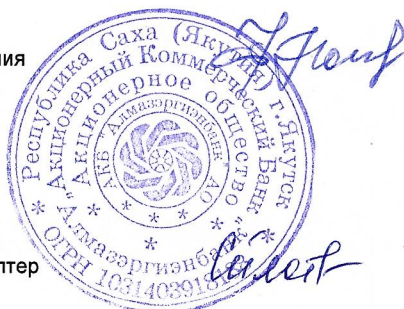 ния
Республика Саха (Якутия) г.Якутск
Акционерный Коммерческий Банк
"Алмазэргиэнбанк"
Акционерное общество
АКБ "Алмазэргиэнбанк" АО
ОГРН
тер